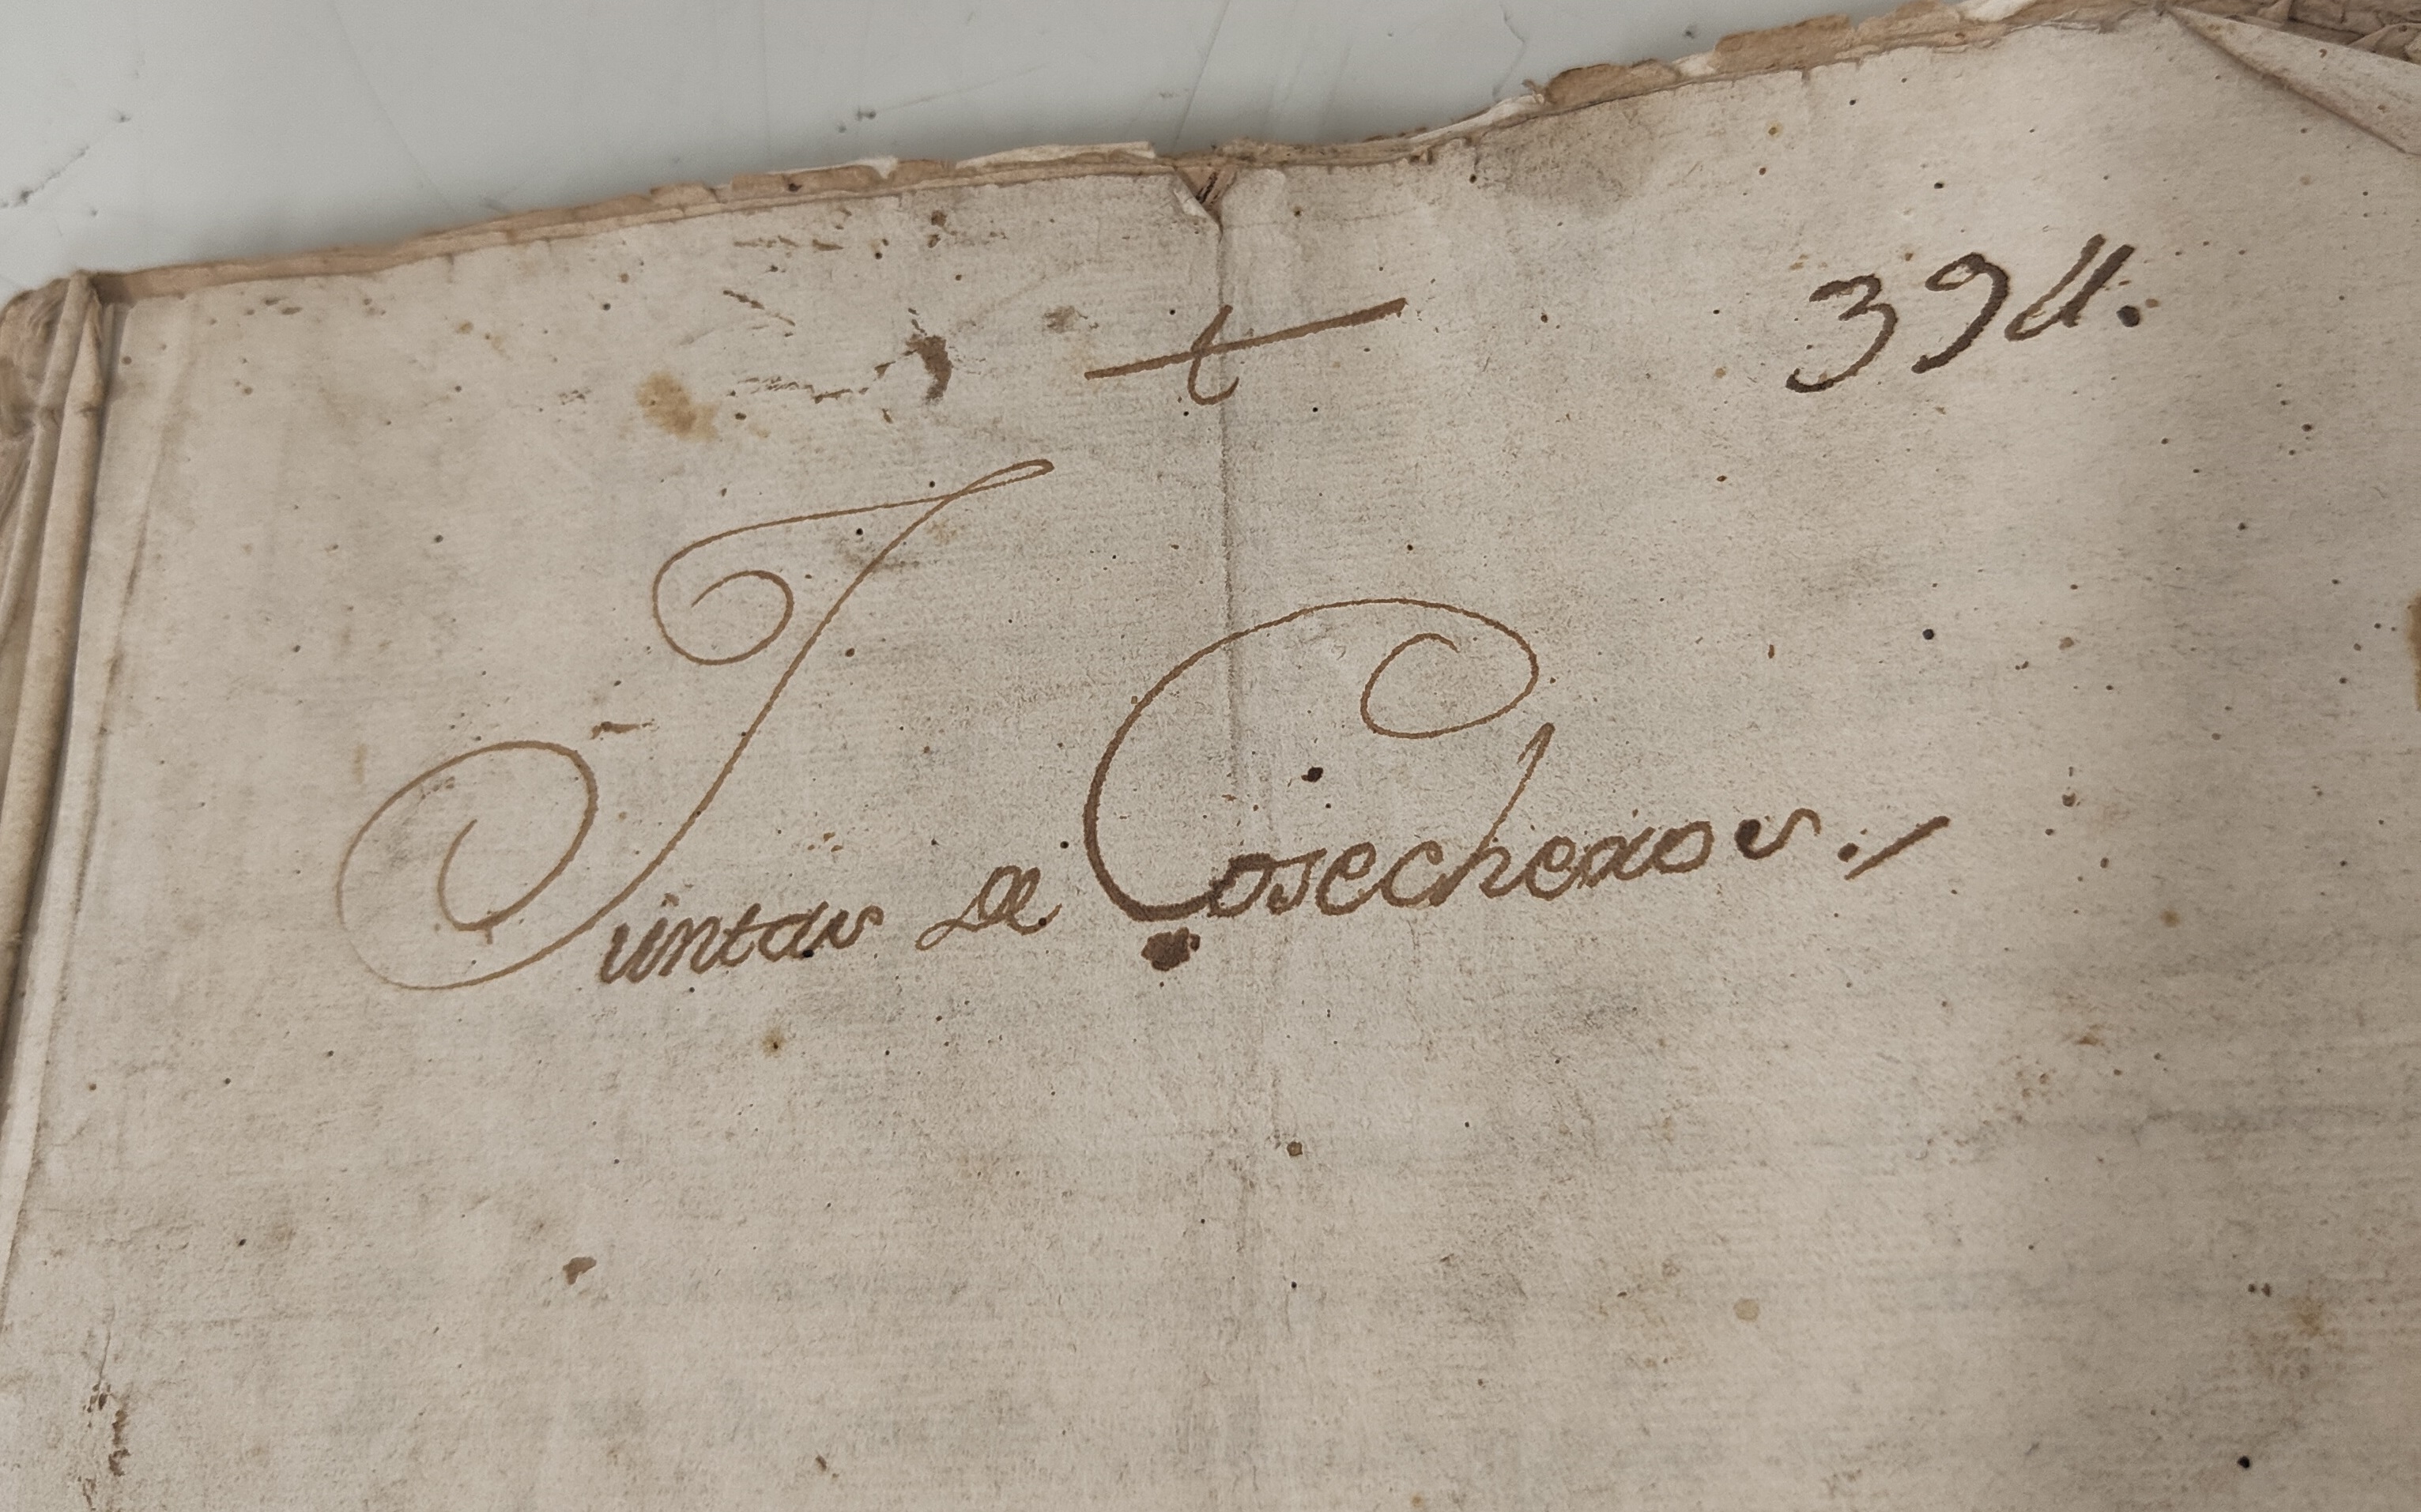 +
394.
Juntas de Cosecheros.